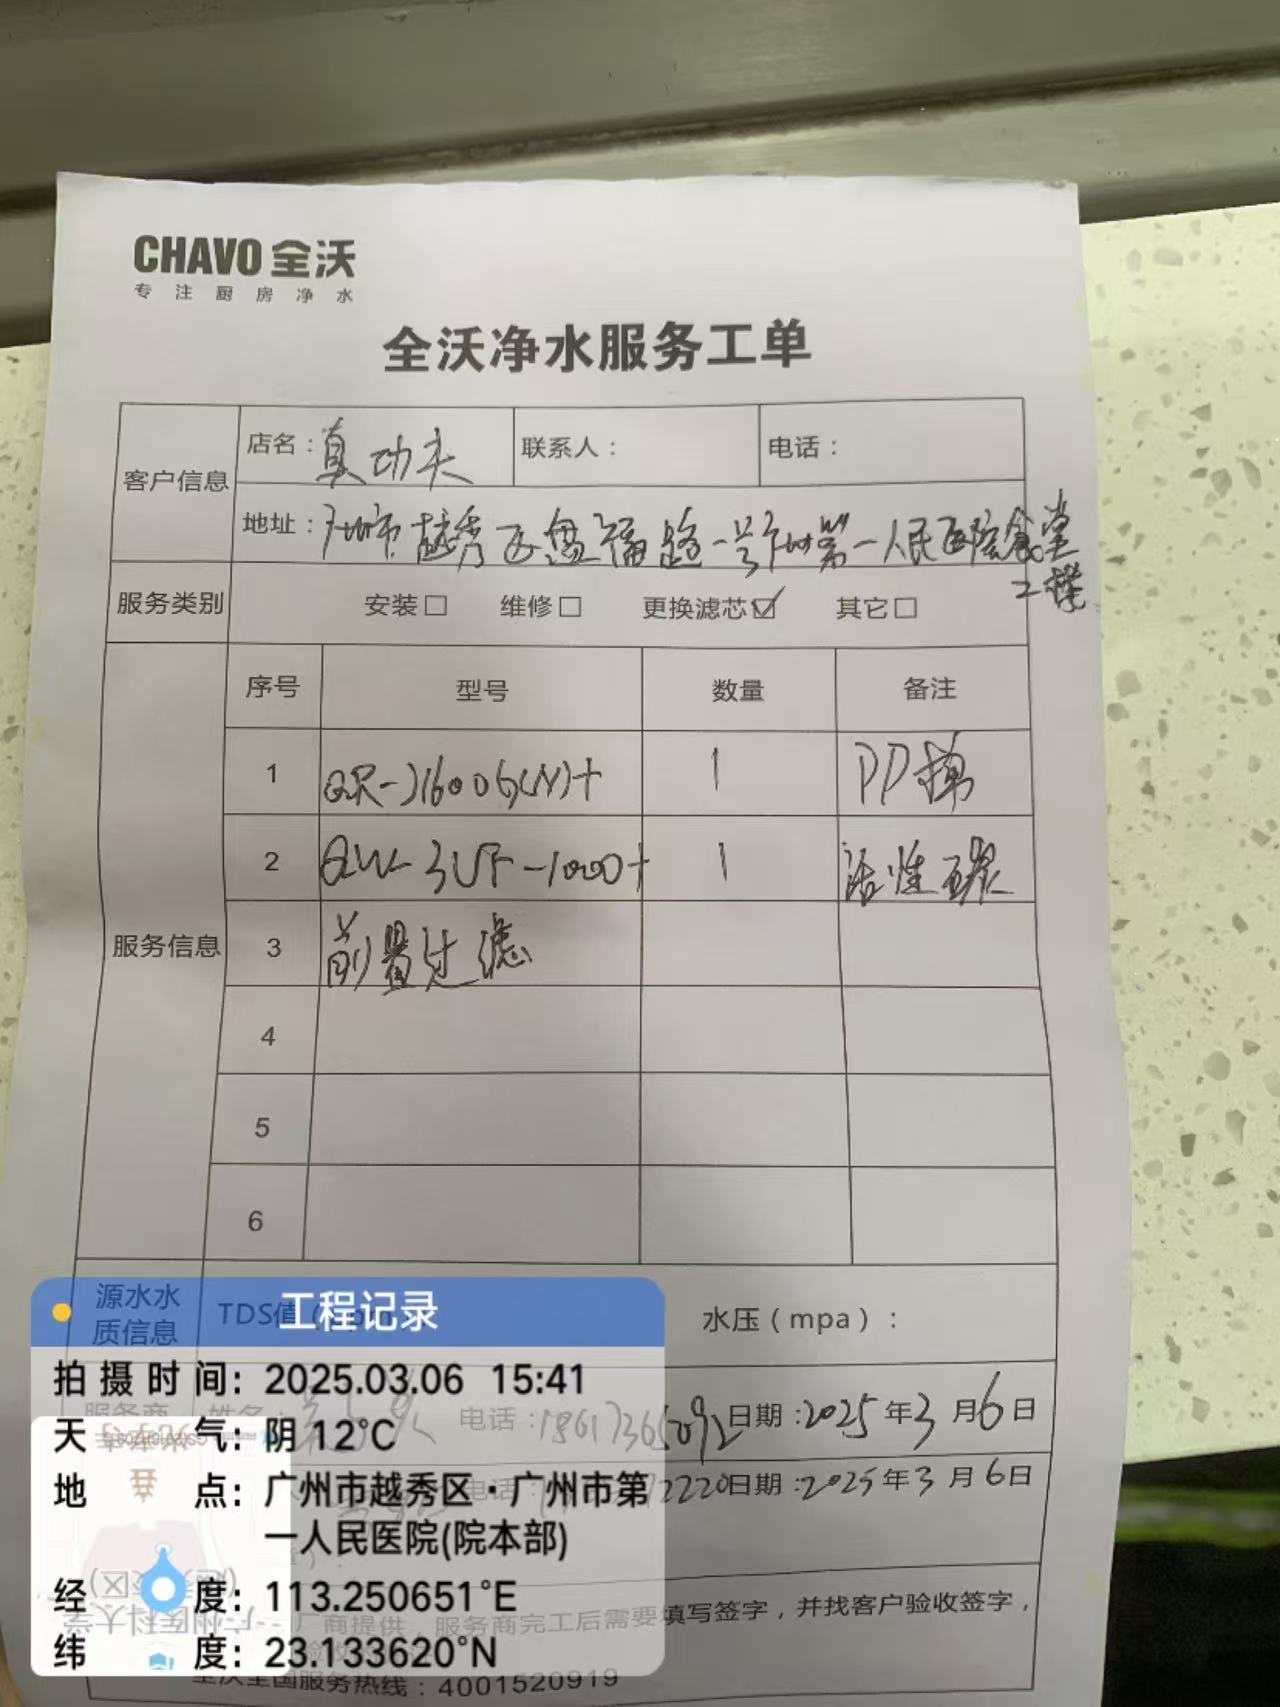 CHAVO 全沃
专注厨房净水
全沃净水服务工单
客户信息
店名：真功夫
联系人：
电话：
地址：广州市越秀区盘福路一号广州第一人民医院食堂
二楼
服务类别
安装□ 维修□ 更换滤芯☑ 其它□
服务信息
序号 型号 数量 备注
1 1 PP棉
2 QW-3UF-1000+ 1 活性碳
3 前置过滤
4
5
6
源水水
质信息
TDS值
水压（mpa）：
服务商 姓名： 电话： 日期：2025年3月6日
电话： 2220 日期：2025年3月6日
厂商提供，服务商完工后需要填写签字，并找客户验收签字，
全沃全国服务热线：4001520919
工程记录
拍摄时间：2025.03.06 15:41
天气：阴 12℃
地点：广州市越秀区·广州市第
一人民医院(院本部)
经度：113.250651°E
纬度：23.133620°N